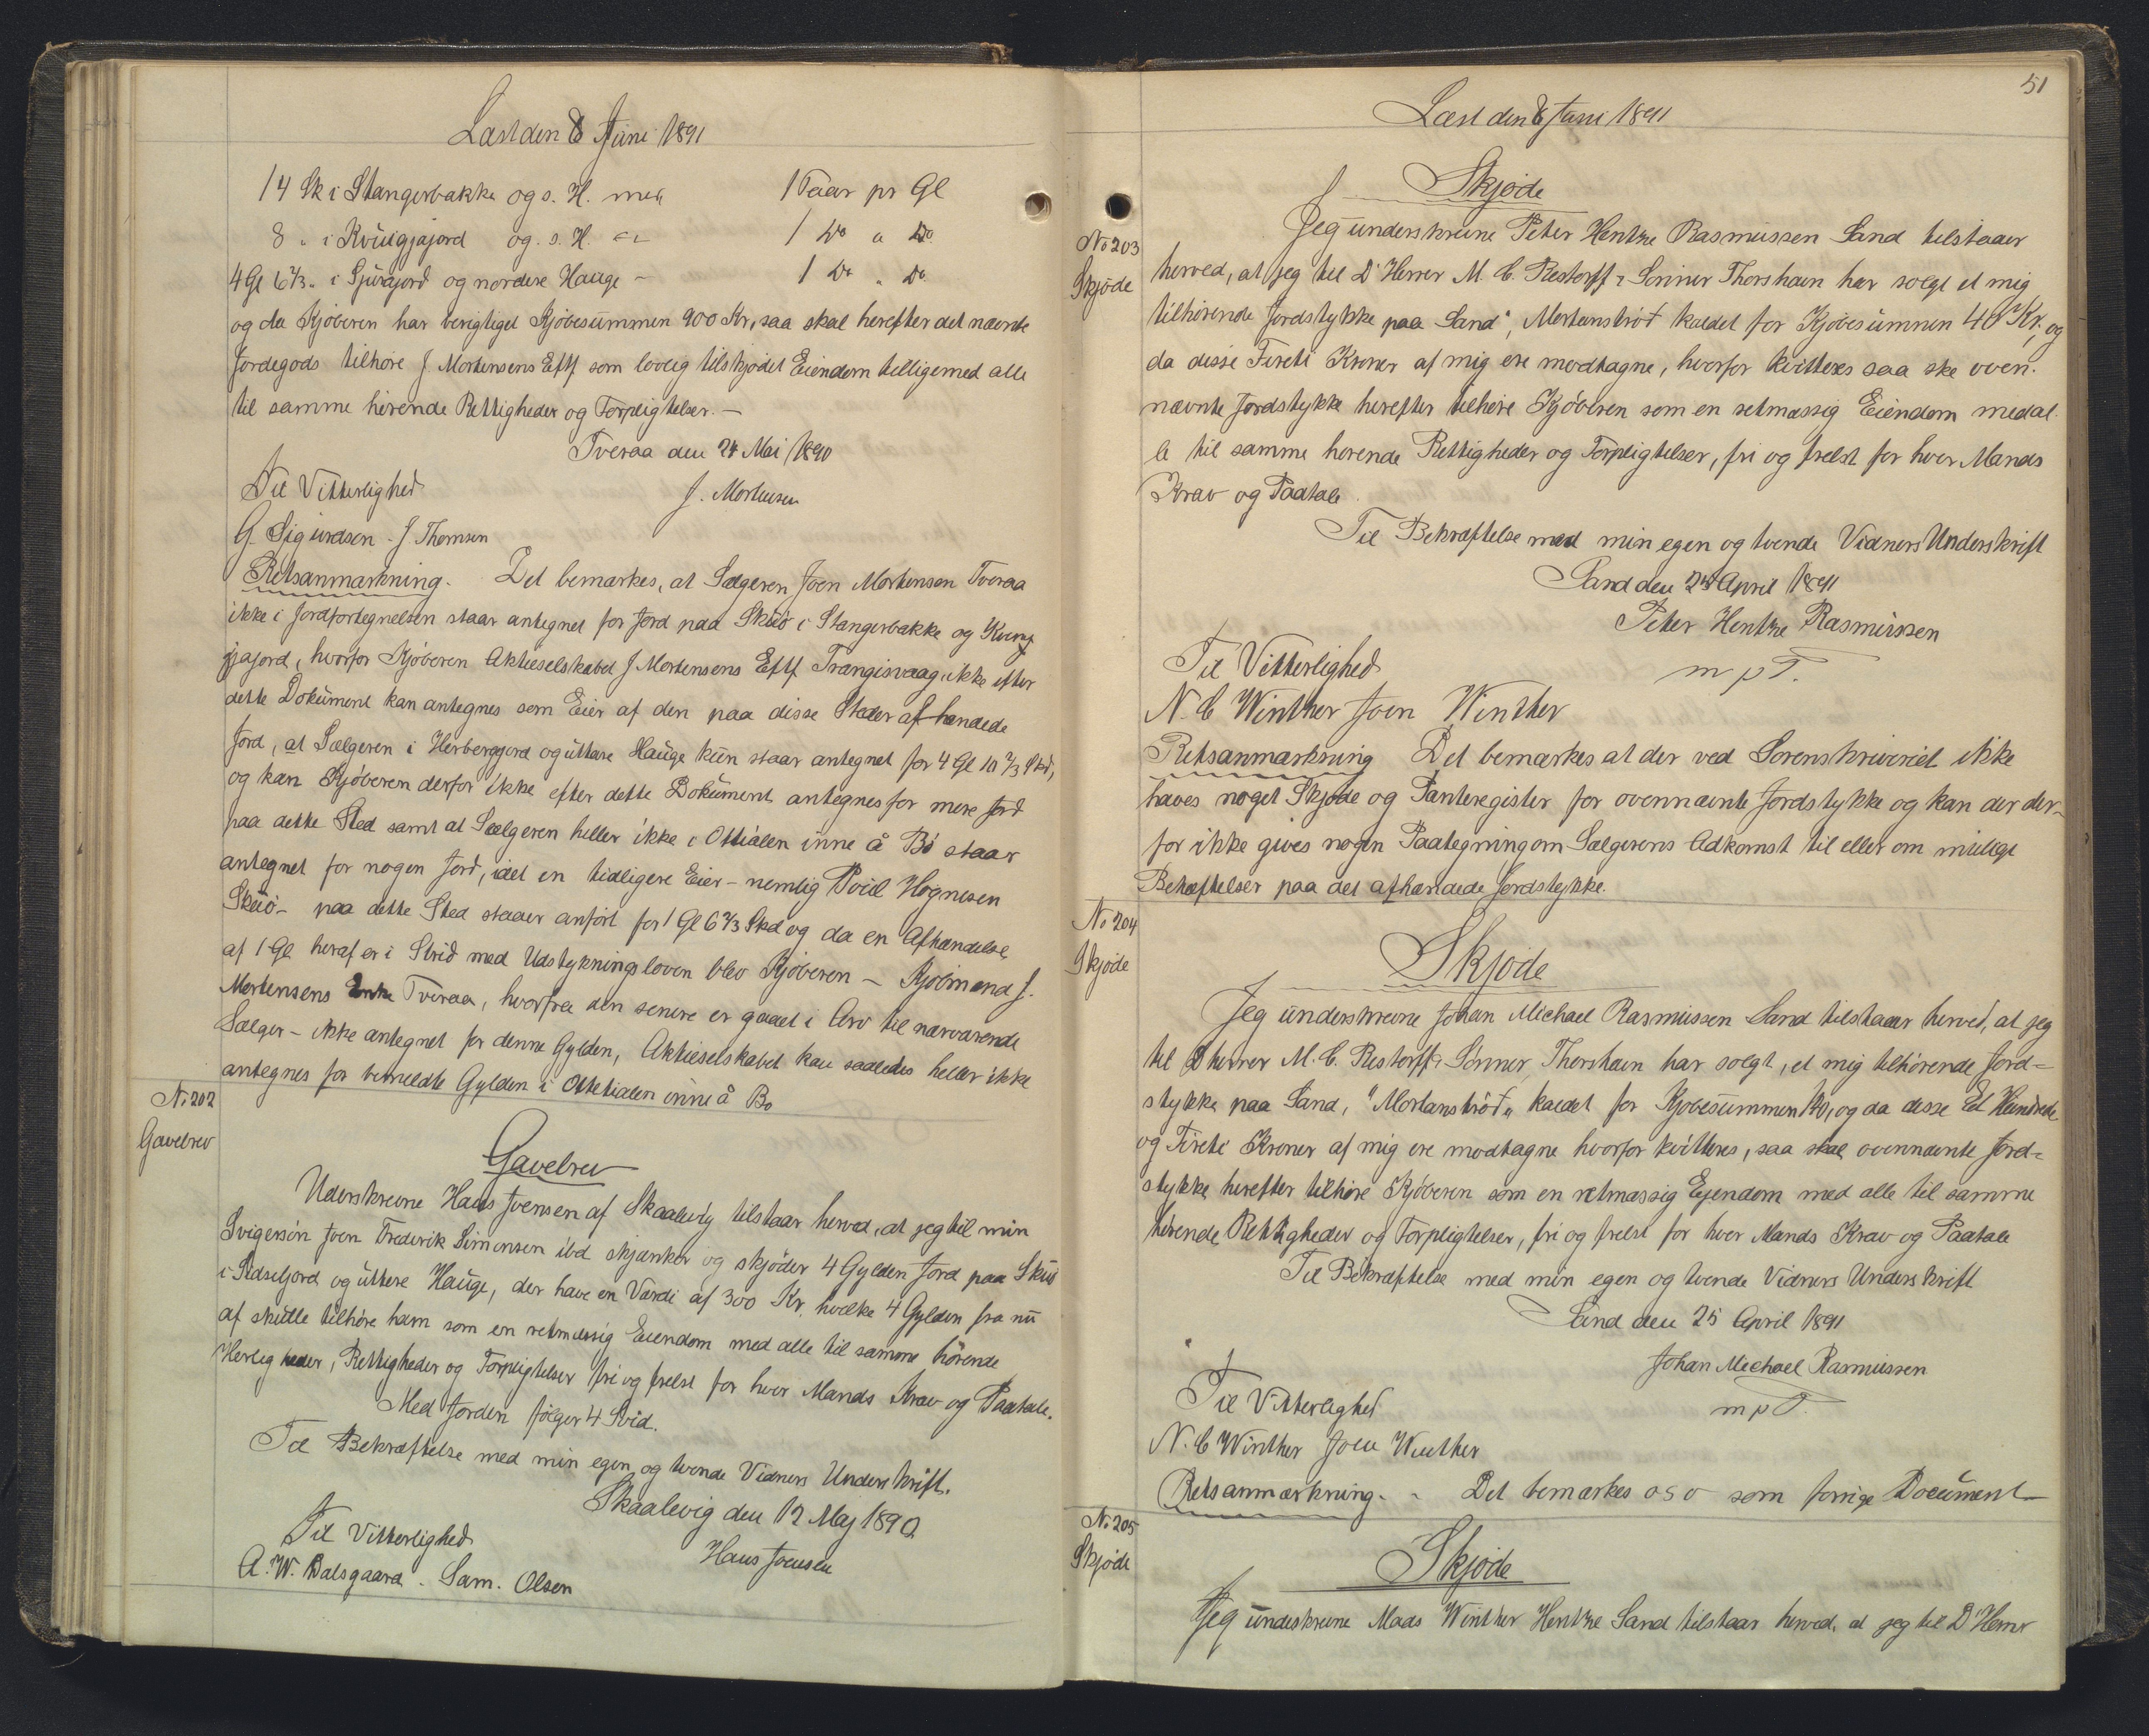 Læst den 8 Juni 1891
14 Sk i Stangerbakke og s. H. med 1 Faar pr Gl
8 „ i Kvingjajord og. s. H. 1 Do „ Do.
4 Gl 6⅔ „ i Sjúrajord og nordere Hauge - 1 Do „ Do.
og da Kjøberen har berigtiget Kjøbesummen 900 Kr, saa skal herefter det nævnte
Jordegods tilhøre J. Mortensens Eftf som lovlig tilskjødet Eiendom tilligemed alle
til samme hørende Rettigheder og Forpligtelser. —
Tveraa den 24 Mai 1890
Til Vitterlighed
J. Mortensen
G. Sigurdsen - J. Thomsen
Retsanmærkning. Det bemærkes, at Sælgeren Joen Mortensen Tveraa
ikke i Jordfortegnelsen staar antegnet for Jord paa Skuø i Stangerbakke og Kving
jajord, hvorfor Kjøberen Aktieselskabet J Mortensens Eftf Trangisvaag ikke efter
dette Dokument kan antegnes som Eier af den paa disse Steder afhændede
Jord, at Sælgeren i Herbergjord og uttare Hauge kun staar antegnet for 4 Gl 10⅔ Skd,
og kan Kjøberen derfor ikke efter dette Dokument antegnes for mere Jord
paa dette Sted samt at Sælgeren heller ikke i Ottialen inne å Bø staar
antegnet for nogen Jord, idet en tidligere Eier - nemlig Poul Høgnesen
Skuø - paa dette Sted staaer anført for 1 Gl 6⅔ Skd og da en Afhændelse
af 1 Gl heraf er i Strid med Udstykningsloven blev Kjøberen - Kjøbmand J.
Mortensens Enke Tveraa, hvorfra den senere er gaaet i Arv til nærværende
Sælger - ikke antegnet for denne Gylden, Aktieselskabet kan saaledes heller ikke
antegnes for bemeldte Gylden i Ottetialen inne å Bø
No 202
Gavebrev
Gavebrev
Uderskrevne Hans Joensen af Skaalevig tilstaar herved, at jeg til min
Svigersøn Joen Frederik Simonsen ibd skjænker og skjøder 4 Gylden Jord paa Skuø
i Sidseljord og uttere Hauge, der have en Værdi af 300 Kr. hvilke 4 Gylden fra nu
af skulle tilhøre ham som en retmæssig Eiendom med alle til samme hørende
Herligheder, Rettigheder og Forpligtelser fri og frelst for hver Mands Krav og Paatale.
Med Jorden følger 4 Svid.
Til Bekræftelse med min egen og tvende Vidners Underskrift.
Skaalevig den 12 Maj 1890
Til Vitterlighed
Hans Joensen
A. W. Dalsgaard . Sam. Olsen
51
Læst den 8 Juni 1891
Skjøde
No 203
Skjøde
Jeg underskrevne Peter Hentze Rasmussen Sand tilstaaer
herved, at jeg til D' Herrer M. C. Restorff & Sønner Thorshavn har solgt et mig
tilhørende Jordstykke paa Sand", Mortanstrøð kaldet for Kjøbesummen 40 Kr. og
da disse Fireti Kroner af mig ere modtagne, hvorfor kvitteres saa ske oven-
nævnte Jordstykke herefter tilhøre Kjøberen som en retmæssig Eiendom medal-
le til samme hørende Rettigheder og Forpligtelser, fri og frelst for hver Mands
Krav og Paatale.
Til Bekræftelse med min egen og tvende Vidners Underskrift
Sand den 25 April 1891
Peter Hentze Rasmussen
Til Vitterlighed
m p T.
N. C Winther Joen Winther
Retsanmærkning Det bemærkes at der ved Sorenskriveriet ikke
haves noget Skjøde og Panteregister for ovennævnte Jordstykke og kan der der-
for ikke gives nogen Paategning om Sælgerens Adkomst til eller om mulige
Behæftelser paa det afhændede Jordstykke.
No 204
Skjøde
Skjøde
Jeg underskrevne Johan Michael Rasmussen Sand tilstaaer herved, at jeg
til D herrer M. C. Restorff & Sønner, Thorshavn har solgt, et mig tilhørende Jord=
stykke paa Sand, "Mortanstrøð" kaldet for Kjøbesummen 140, og da disse Et Hundrede
og Fireti Kroner af mig ere modtagne hvorfor kvitteres, saa skal ovennævnte Jord=
stykke herefter tilhøre Kjøberen som en retmæssig Ejendom med alle til samme
hørende Rettigheder og Forpligtelser, fri og frelst for hver Mands Krav og Paatale
Til Bekræftelse med min egen og tvende Vidners Underskrift
Sand den 25 April 1891
Johan Michael Rasmussen
Til Vitterlighed
m p T.
N. C Winther Joen Winther
Retsanmærkning. - Det bemærkes o s v som forrige Document
No 205
Skjøde
Skjøde
Jeg undeskrevne Mads Winther Hentze Sand tilstaar herved, at jeg til D' Herrer